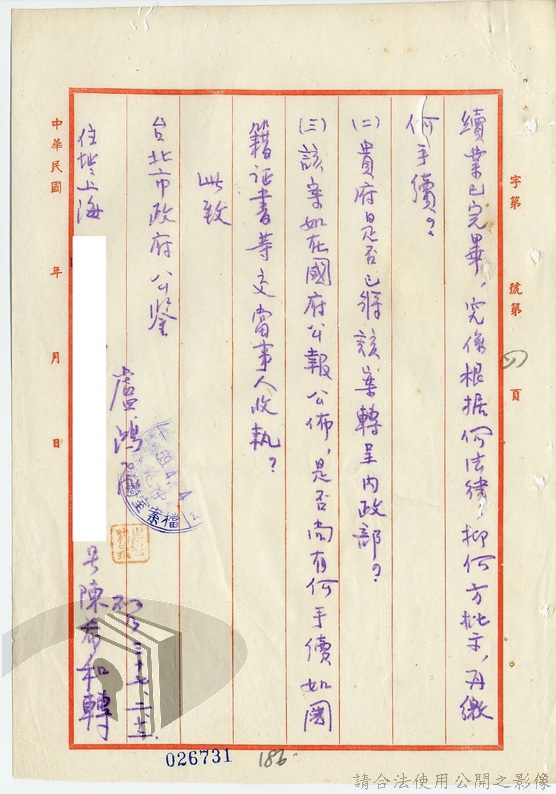 字第
號第
頁
續業已完畢，究係根据何法律，抑何方批示，再繳
何手續？
(二)貴府是否已將該案轉呈內政部？
(三)該案如在國府公報公佈，是否尚有何手續如國
籍证書等交當事人收執？
此致
台北市政府公鑒
盧鴻
住址上海
号陳
和轉
中華民國
年
月
日
檔案室
026731
186
請合法使用公開之影像